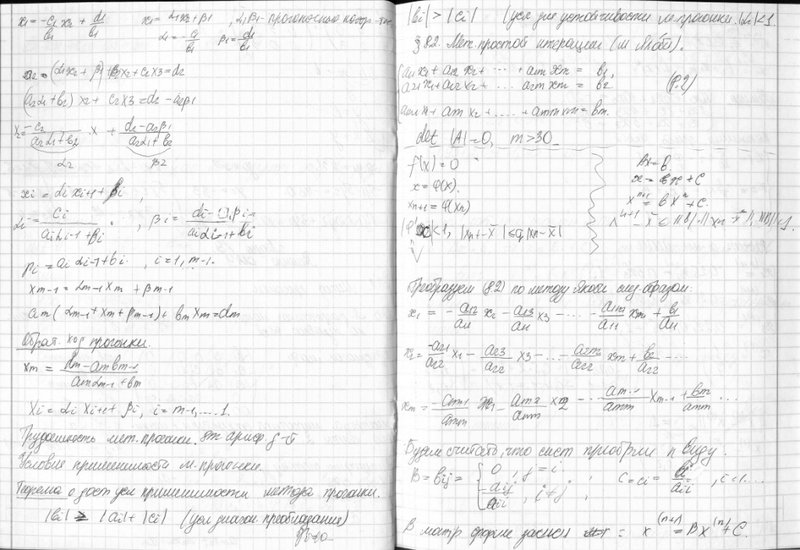 x₁ = -c₁/b₁ x₂ + d₁/b₁   x₁ = α₁x₂ + β₁, α₁β₁ - прогоночные коэф-
α₁ = -c₁/b₁   β₁ = d₁/b₁
a₂(α₁x₂ + β₁) + b₂x₂ + c₂x₃ = d₂
(a₂α₁ + b₂) x₂ + c₂x₃ = d₂ - a₂β₁
x₂ = -c₂/(a₂α₁ + b₂) x + (d₂ - a₂β₁)/(a₂α₁ + b₂)
α₂   β₂
xi = αi xi+1 + βi,
αi = - ci/(aiαi-1 + bi), βi = (di - aiβi-1)/(aiαi-1 + bi)
pi = aiαi-1 + bi, i = 1, m-1.
xm-1 = αm-1 xm + βm-1
am(αm-1 + xm + βm-1) + bmxm = dm
Обрат. ход прогонки.
xm = (dm - ambm-1)/(amαm-1 + bm)
Xi = αi Xi+1 + βi, i = m-1,....1.
Трудоемкость мет. прогонки. ариф.
Условия применимости м. прогонки.
Теорема о дост усл применимости метода прогонки.
|bi| ≥ |ai| + |ci| (усл диагон преобладания)
|bi| > |ci| (усл для устойчивости м. прогонки. |αi|<1.
§ 8.2. Мет. простой итерации (м Якоби).
a11 x1 + a12 x2 + ... + a1m xm = b1,
a21 x1 + a22 x2 + ... + a2m xm = b2   (8.2)
am1 x1 + am2 x2 + ... + amm xm = bm.
det |A| = 0, m > 30
f(x) = 0   Ax = b
x = φ(x).   x = Bx + C
xn+1 = φ(xn)   xⁿ⁺¹ = B xⁿ + C.
<1, |xn+1 - x̄| ≤ q |xn - x̄|
Преобразуем (8.2) по методу Якоби след. образом:
x1 = - a12/a11 x2 - a13/a11 x3 - ... a1m/a11 xm + b1/a11
x2 = -a21/a22 x1 - a23/a22 x3 - ... a2m/a22 xm + b2/a22 ...
xm = - am1/amm x1 - am2/amm x2 - ... am-1/amm xm-1 + bm/amm ...
Будем считать, что сист приобрели к виду:
B = bij = { 0, j = i; -aij/aii, i ≠ j   C = ci = bi/aii, i = 1...
В матр. форме : x⁽ⁿ⁺¹⁾ = Bx⁽ⁿ⁾ + C.